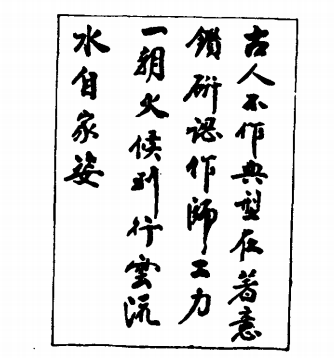 古人不作典型在著意
鑽研認作師工力
一朝火候到行雲流
水自家姿